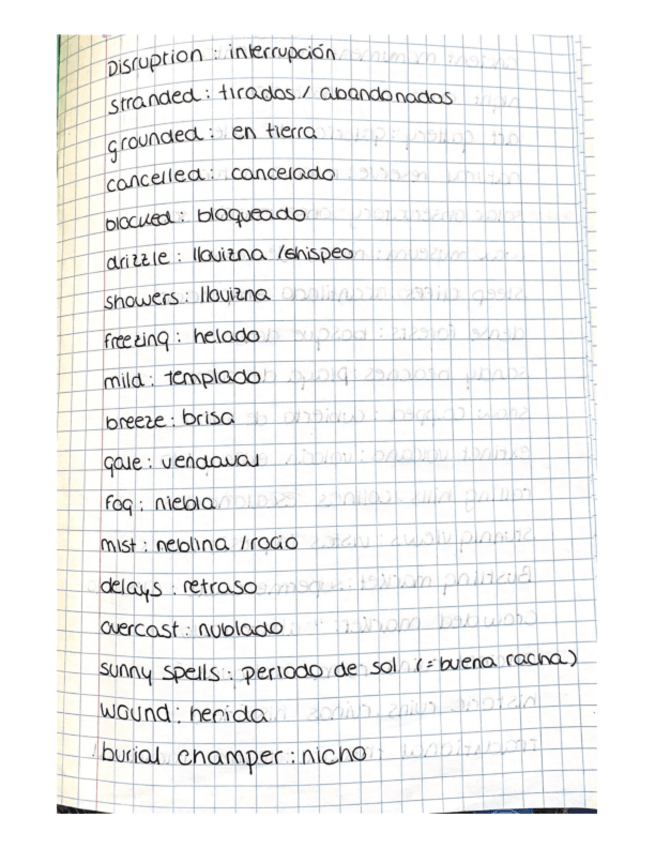 Disruption : interrupción
stranded : tirados / abandonados
grounded : en tierra
cancelled : cancelado
blocked : bloqueado
drizzle : llovizna / chispeo
showers : llovizna
freezing : helado
mild : templado
breeze : brisa
gale : vendaval
fog : niebla
mist : neblina / rocio
delays : retraso
overcast : nublado
sunny spells : periodo de sol (= buena racha)
wound : herida
burial champer : nicho